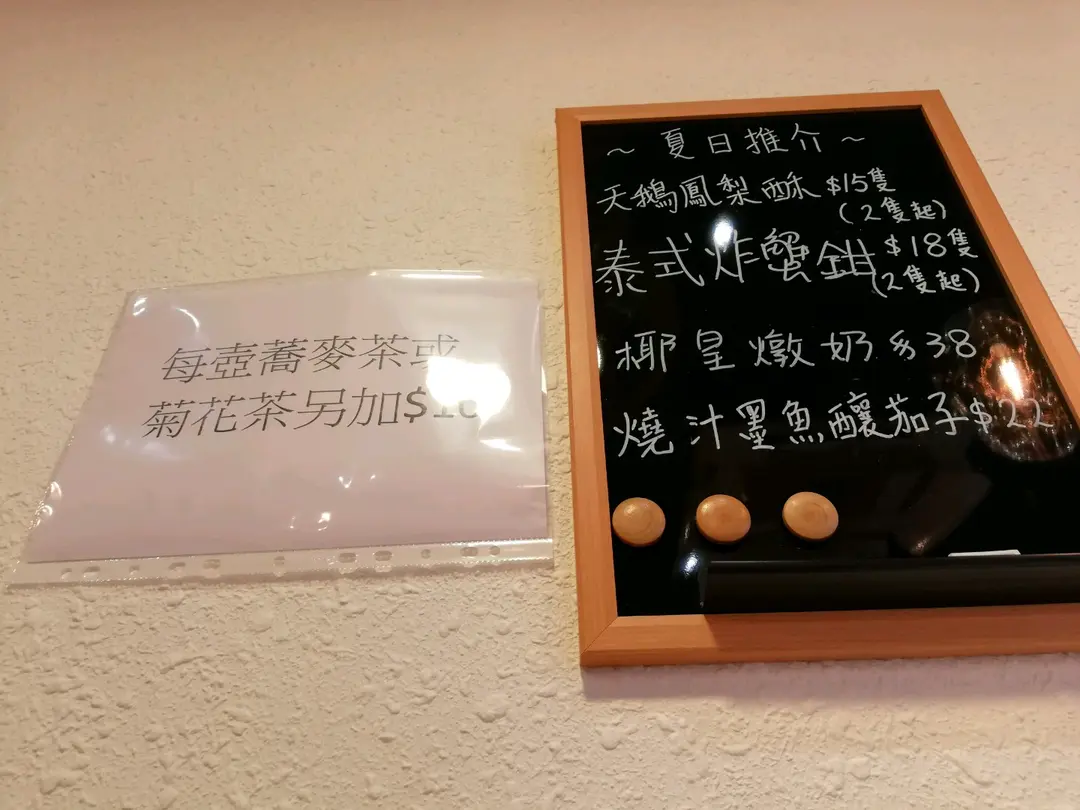 每壺蕎麥茶或
菊花茶另加$10
～ 夏日推介 ～
天鵝鳳梨酥 $15隻
(2隻起)
泰式炸蟹鉗 $18隻
(2隻起)
椰皇燉奶 $38
燒汁墨魚釀茄子 $22